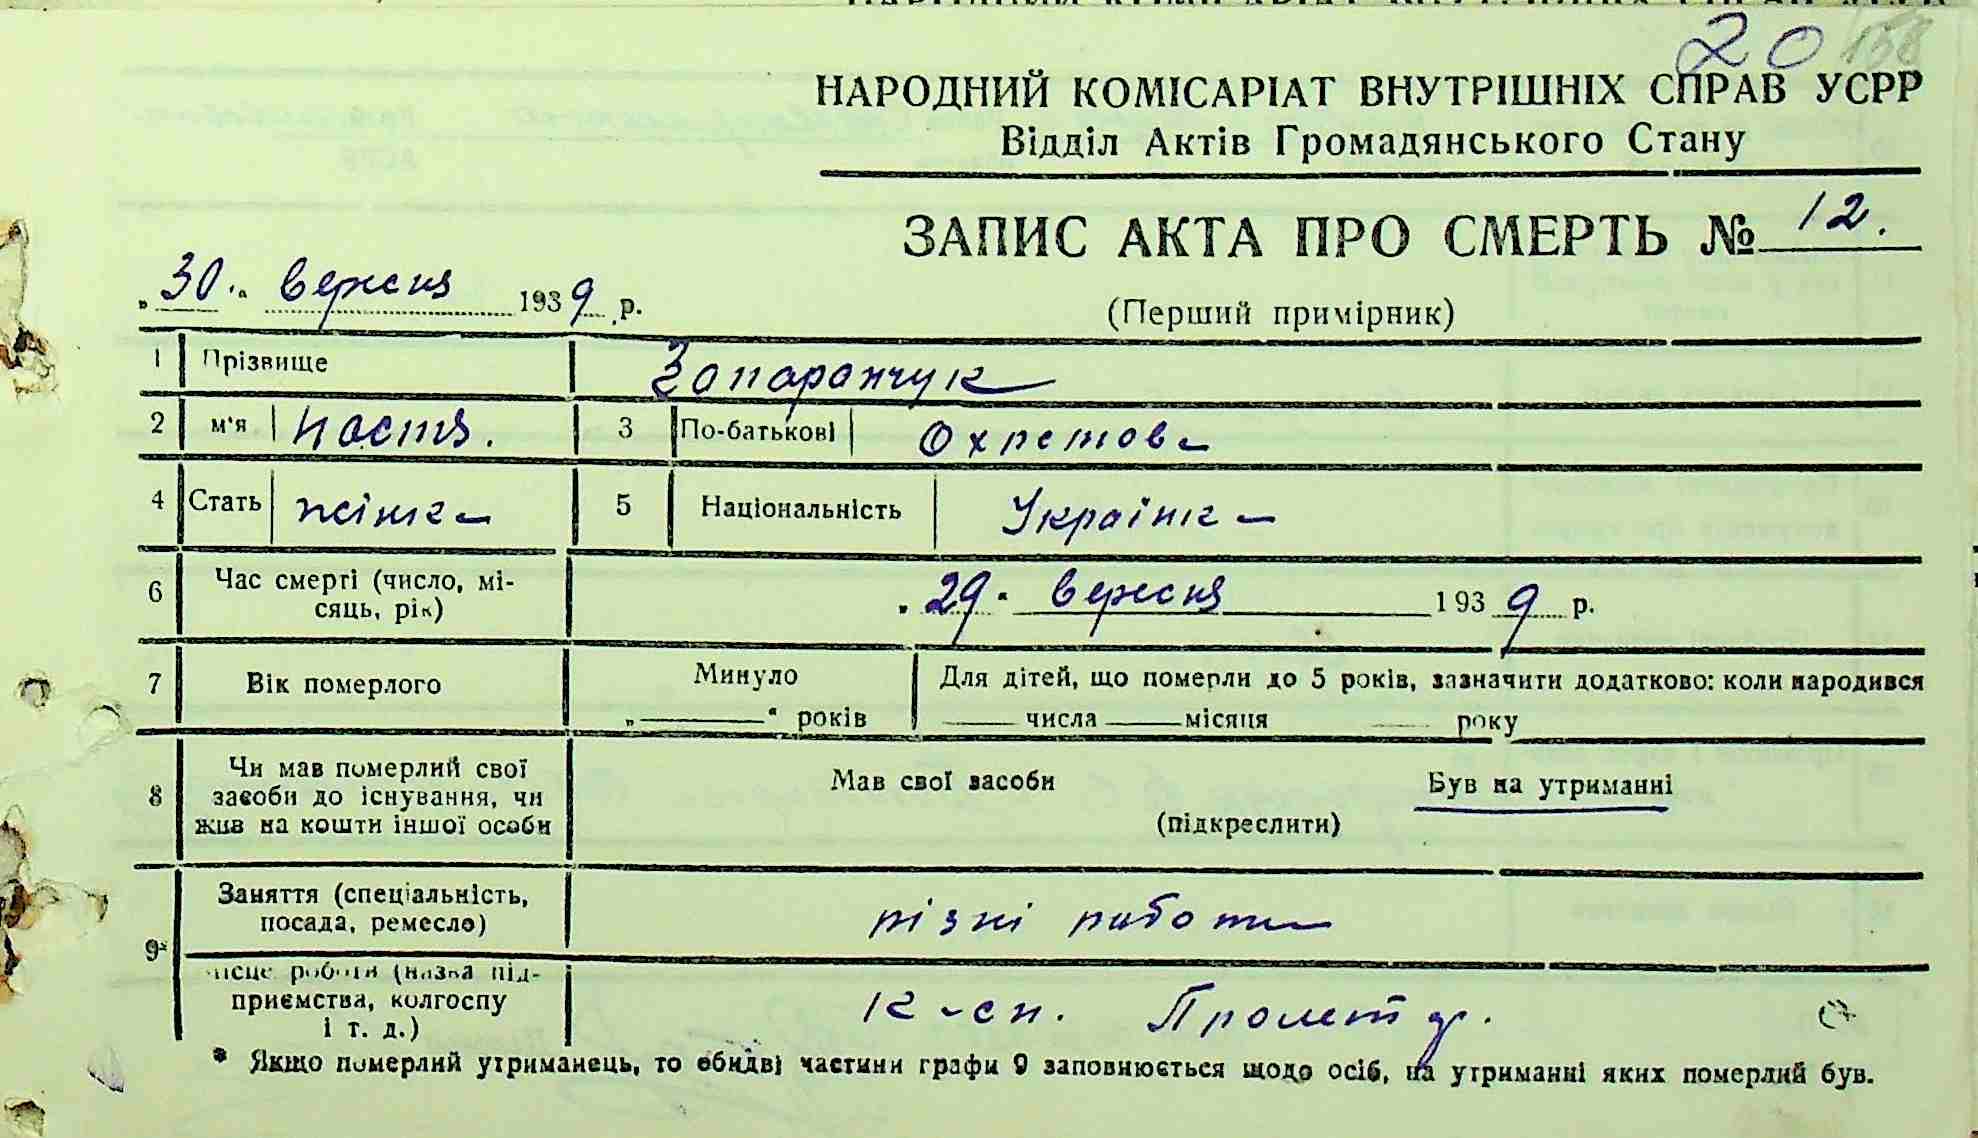 20 158
НАРОДНИЙ КОМІСАРІАТ ВНУТРІШНІХ СПРАВ УСРР
Відділ Актів Громадянського Стану
ЗАПИС АКТА ПРО СМЕРТЬ № 12.
„30." вересня 1939 р.
(Перший примірник)
1 Прізвище Запаранчук
2 м'я Настя. 3 По-батькові
4 Стать жінка 5 Національність Українка
6 Час смерті (число, мі-
сяць, рік) „29" вересня 1939 р.
7 Вік померлого Минуло „——" років Для дітей, що померли до 5 років, зазначити додатково: коли народився
—— числа —— місяця —— року
8 Чи мав померлий свої
засоби до існування, чи
жив на кошти іншої особи
Мав свої засоби Був на утриманні
(підкреслити)
9* Заняття (спеціальність,
посада, ремесло) різні работи
місце роботи (назва під-
приємства, колгоспу
і т. д.) к-сп. Пролетар.
* Якщо померлий утриманець, то обидві частини графи 9 заповнюється щодо осіб, на утриманні яких померлий був.